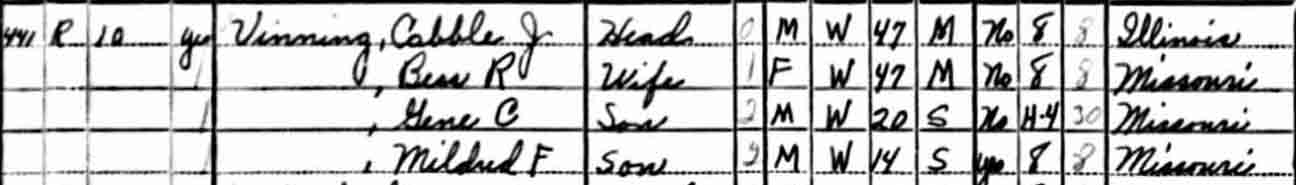 441 R 10 yes Vinning, Cabble J Head 0 M W 47 M No 8 8 Illinois
, Bess R Wife 1 F W 47 M No 8 8 Missouri
, Gene C Son 2 M W 20 S No H-4 30 Missouri
, Mildred F Son 2 M W 14 S yes 8 8 Missouri